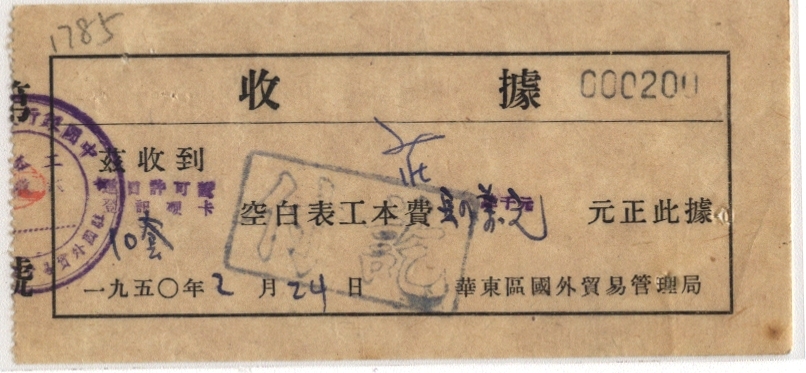 1785
收據 000200
第
茲收到
許可
10套
空白表工本費 元正此據
號
一九五〇年2月24日 華東區國外貿易管理局
付訖